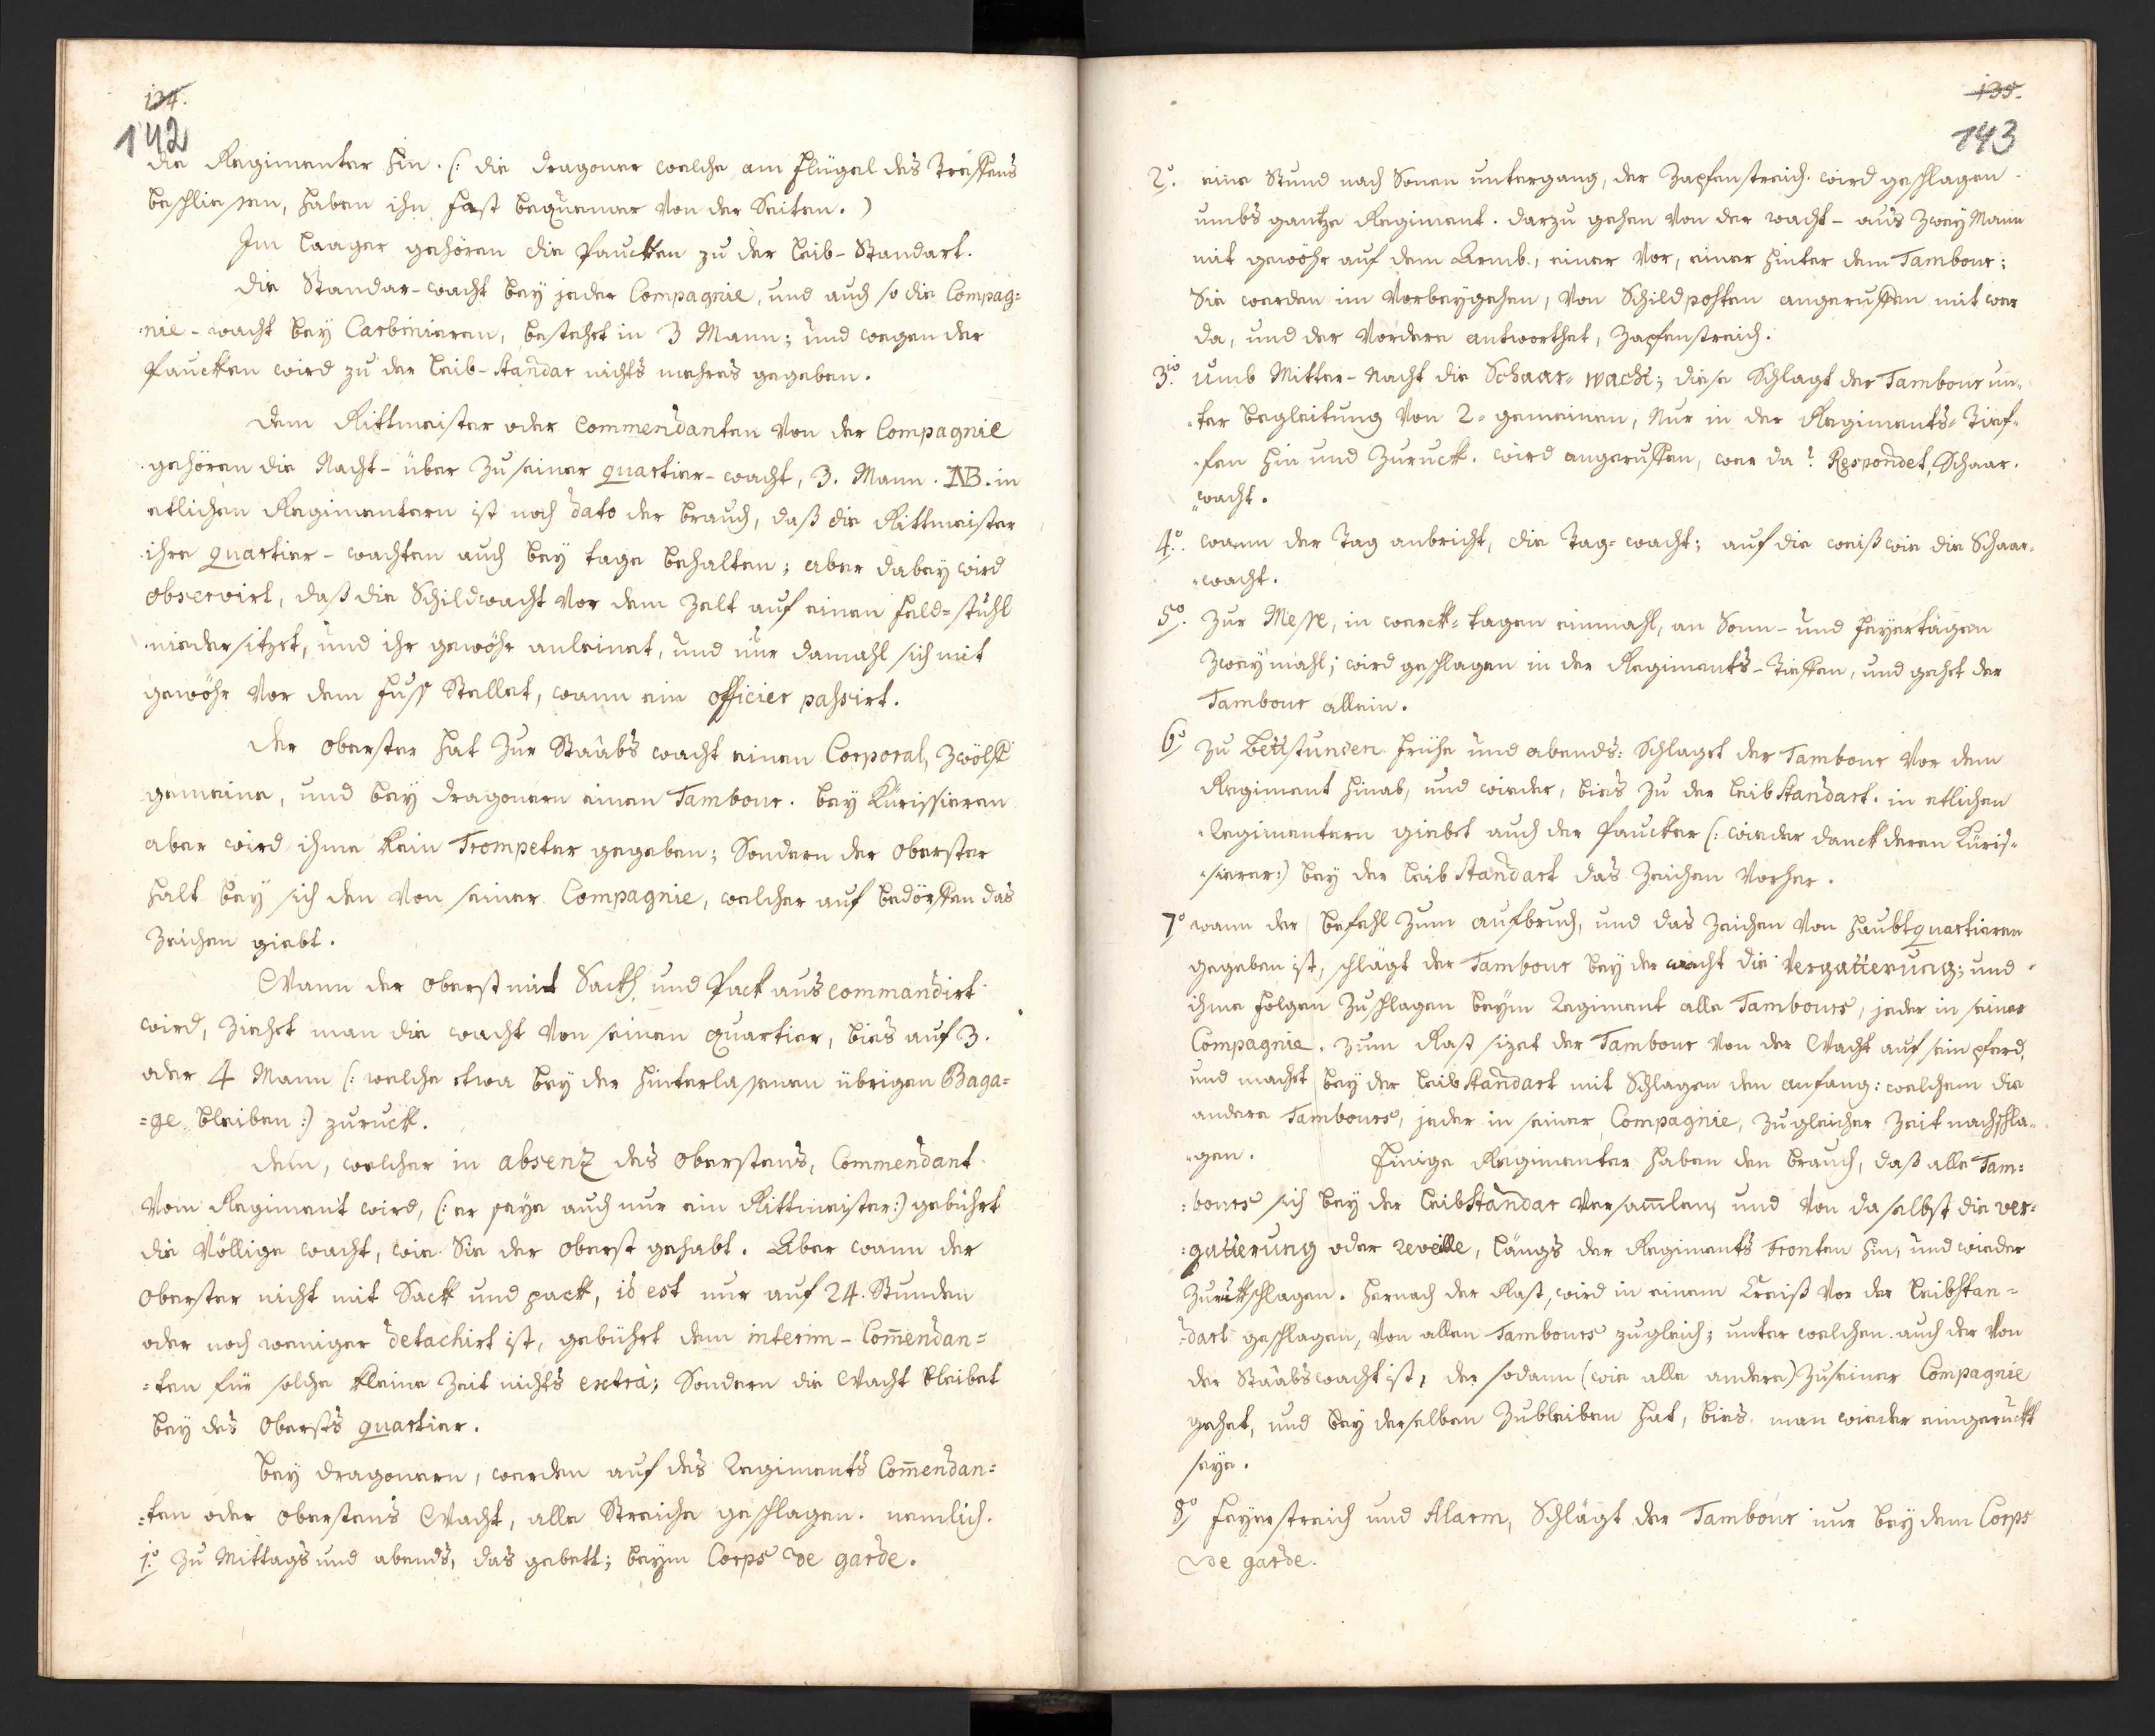 134.
142
die Regimenter hin. (: die dragoner welche am flügel des Treffens
beschliessen, haben ihn fast bequemer von der Seiten.)
Im Laager gehören die Paucken zu der Leib-Standart.
die Standar-wacht bey jeder Compagnie, und auch so die Compag=
nie-wacht bey Carbinieren, bestehet in 3 Mann; und wegen der
Paucken wird zu der Leib-standar nichts mehres gegeben.
dem Rittmeister oder Commendanten von der Compagnie
gehören die Nacht-über zu seiner quartier-wacht, 3. Mann. NB. in
etlichen Regimentern ist noch dato der brauch, daß die Rittmeister
ihre quartier-wachten auch bey tage behalten; aber dabey wird
observirt, daß die Schildwacht vor dem Zelt auf einen feld=stuhl
niedersitzet, und ihr gewöhr anleinet, und nur damahl sich mit
gewöhr vor dem fuss Stellet, wann ein officier passirt.
der oberster hat zur Staabs wacht einen Corporal, zwölff
gemeine, und bey dragonern einen Tambour. bey Kürissieren
aber wird ihme kein Trompeter gegeben; Sondern der oberster
halt bey sich den von seiner Compagnie, welcher auf bedörffen das
zeichen giebt.
Wann der oberst mit Sack und Pack aus commandirt
wird, ziehet man die wacht von seinen quartier, bies auf 3.
oder 4 Mann (: welche etwa bey der hinterlassenen übrigen Baga=
=ge bleiben:) zuruck.
dem, welcher in absenz des oberstens, Commendant
vom Regiment wird, (: er seye auch nur ein Rittmeister:) gebührt
die völlige wacht, wie Sie der oberst gehabt. Aber wann der
oberster nicht mit Sack und pack, id est nur auf 24. Stunden
oder noch weniger detachirt ist, gebührt dem interim-Com̄endan=
=ten für solche kleine zeit nichts extra; Sondern die Wacht bleibet
bey des obersts quartier.
bey dragonern, werden auf des Regiments Com̄endan=
=ten oder oberstens Wacht, alle Streiche geschlagen. nemlich.
1.º zu Mittags und abends, das gebett; beym Corps de garde.
135.
143
2.º eine Stund nach Sonen untergang, der zapfenstreich wird geschlagen
umbs gantze Regiment. darzu gehen von der wacht-aus zwey Mann
mit gewöhr auf dem Armb., einer vor, einer hinter dem Tambour;
Sie werden im vorbeygehen, von Schildposten angeruffen mit wer
da, und der vordere antworthet, zapfenstreich.
3.tio umb Mitter-Nacht die Schaar=wacht; diese Schlagt der Tambour un=
=ter begleitung von 2=gemeinen, nur in der Regiments=Tief=
=fen hin und zuruck. wird angeruffen, wer da? Respondet, Schaar.
=wacht.
4.º wann der Tag anbricht, die Tag=wacht; auf die weiß wie die Schaar=
=wacht.
5º. zur Messe, in werck=tagen einmahl, an Sonn- und feyertägen
zwey mahl; wird geschlagen in der Regiments-Tieffen, und gehet der
Tambour allein.
6º zu bettstunden frühe und abends: Schlaget der Tambour vor dem
Regiment hinab, und wieder, bies zu der Leib standart. in etlichen
Regimentern giebet auch der Paucker (: wieder danck deren Küris=
=sierer:) bey der Leib standart das zeichen vorher.
7º wann der befehl zum aufbruch, und das zeichen von haubtquartieren
gegeben ist, schlägt der Tambour bey der wacht die vergatierung; und
ihme folgen zuschlagen beym Regiment alle Tambours, jeder in seiner
Compagnie. zum Rast sizet der Tambour von der Wacht auf sein pferd,
und machet bey der Leib standart mit Schlagen den anfang: welchem die
andere Tambours, jeder in seiner Compagnie, zugleicher zeit nachschla=
=gen. Einige Regimenter haben den brauch, daß alle Tam=
=bours sich bey der Leibstandar versam̄len, und von daselbst die ver=
=gatierung oder reveille, längs der Regiments Fronten hin, und wieder
zuruckschlagen. hernach der Rast, wird in einem Creiß vor der Leibstan=
=dart geschlagen, von allen Tambours zugleich; unter welchen auch der von
der Staabs wacht ist, der sodann (wie alle andere) zu seiner Compagnie
gehet, und bey derselben zubleiben hat, bies man wieder eingeruckt
seye.
8º feyerstreich und Alarm, Schlägt der Tambour nur bey dem Corps
de garde.